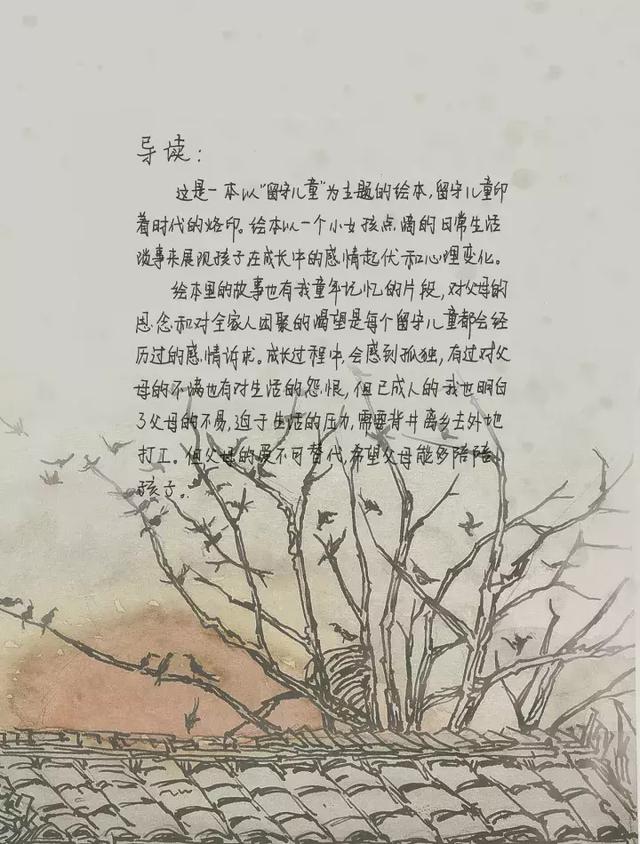 导读：
这是一本以“留守儿童”为主题的绘本，留守儿童印
着时代的烙印。绘本以一个小女孩点滴的日常生活
琐事来展现孩子在成长中的感情起伏和心理变化。
绘本里的故事也有我童年记忆的片段，对父母的
思念和对全家人团聚的渴望是每个留守儿童都会经
历过的感情诉求。成长过程中，会感到孤独，有过对父
母的不满也有对生活的怨恨，但已成人的我也明白
了父母的不易，迫于生活的压力，需要背井离乡去外地
打工。但父母的爱不可替代，希望父母能多陪陪
孩子。